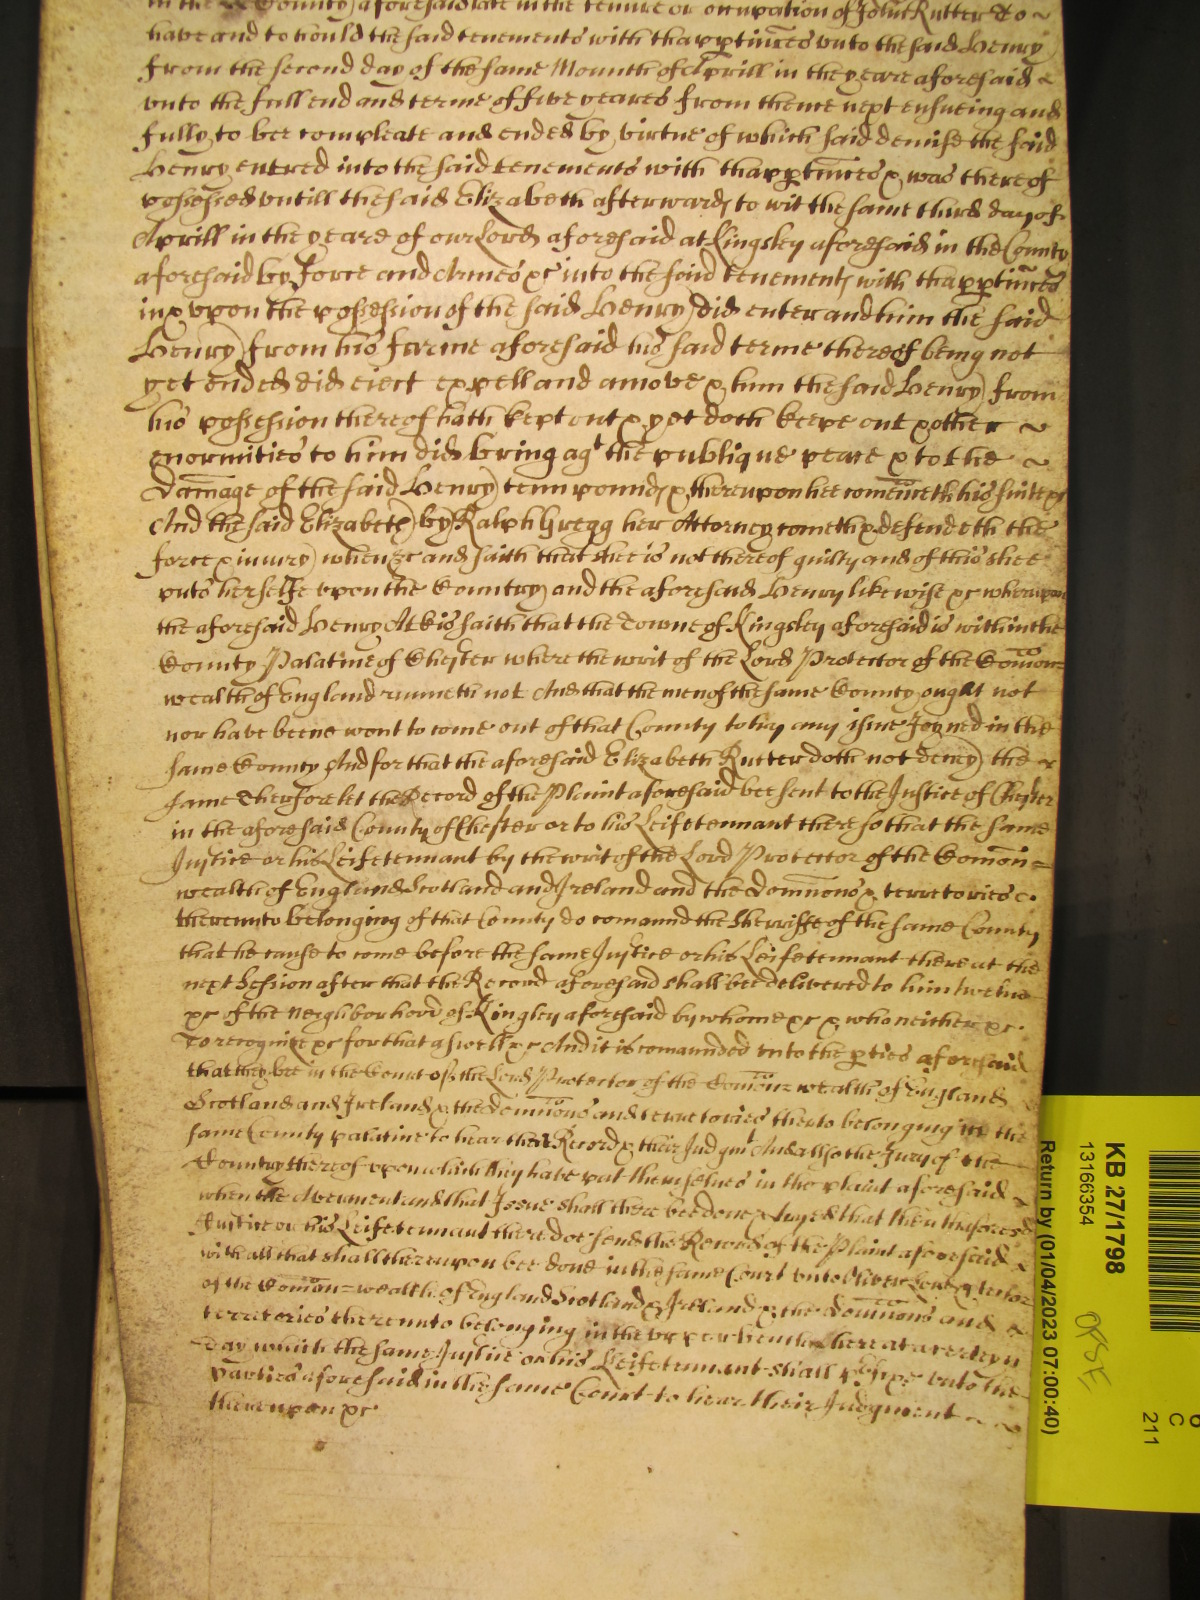 in the County aforesaid late in the tenure or occupation of John Rutter To
have and to hould the said tenements with thapp̱tiñces vnto the said Henry
from the second day of the same Mounth of Aprill in the yeare aforesaid
vnto the full end and terme of five yeares from thence next ensueing and
fully to bee compleate and ended by virtue of which said demise the said
Henry entred into the said tenements with thapp̱tiñces & was thereof
possessed vntill the said Elizabeth afterwards to wit the same third day of
Aprill in the yeare of our Lord aforesaid at Kingsley aforesaid in the County
aforesaid by force and Armes &c into the said tenements with thapp̱tiñces
in & vpon the possession of the said Henry did enter and him the said
Henry from his farme aforesaid his said terme thereof being not
yet ended did eiect expell and amove & him the said Henry from
his possession thereof hath kept out & yet doth keepe out & other
enormities to him did bring agt the publique peace & to the
Dam̄age of the said Henry tenn pounds & thereupon hee com̄enceth his suite &c
And the said Elizabeth by Ralph Gregg her Attorney cometh & defendeth the
force & iniury when &c and saith that shee is not thereof guilty and of this shee
puts herselfe vpon the Country and the aforesaid Henry likewise &c whereupon
the aforesaid Henry Atkis saith that the Towne of Kingsley aforesaid is within the
County Palatine of Chester where the writ of the Lord Protector of the Com̄on=
wealth of England runneth not And that the men of the same County ought not
nor have beene wont to come out of that County to try any issue Joyned in the
same County And for that the aforesaid Elizabeth Rutter doth not deny the
same Therfore let the Record of the Plaint aforesaid bee sent to the Justice of Chester
in the aforesaid County of Chester or to his Leifetennant there so that the same
Justice or his Leifetennant by the writ of the Lord Protector of the Com̄on=
wealth of England Scotland and Ireland and the Domin̄ons & terretories
thereunto belonging of that County do comaund the Sherriffe of the same County
that he cause to come before the same Justice or his Leifetennant there at the
next Session after that the Record aforesaid shall bee delivered to him twelve
&c of the neighborhood of Kingley aforesaid by whome &c & who neither &c
To recognize &c for that aswell &c And it is comaunded vnto the p̱ties aforesaid
that they bee in the Court of the Lord Protector of the Com̄on wealth of England
Scotland and Ireland & the domin̄ons and terretories therto belonging in the
same County palatine to hear their Record & their Judgmt And allso the Jury of the
Country thereof vpon which they have put themselves in the plaint aforesaid
when the Averment and that Issue shall there bee done & tryed that then the foresd
Justice or his Leifetennant there doe send the Record of the Plaint aforesaid
with all that shall thereupon bee done in the same Court vnto Oliver Lord Protector
of the Com̄on=wealth of England Scotland & Ireland & the domin̄ons and
territories thereunto belonging in the vpper bench here at a certeyn
day which the same Justice or his Leifetennant shall vnto the
parties aforesaid in the same Court to hear their Judgment
thereupon &c
KB 27/1798
13166354
Return by (01/04/2023 07:00:40)
C
211